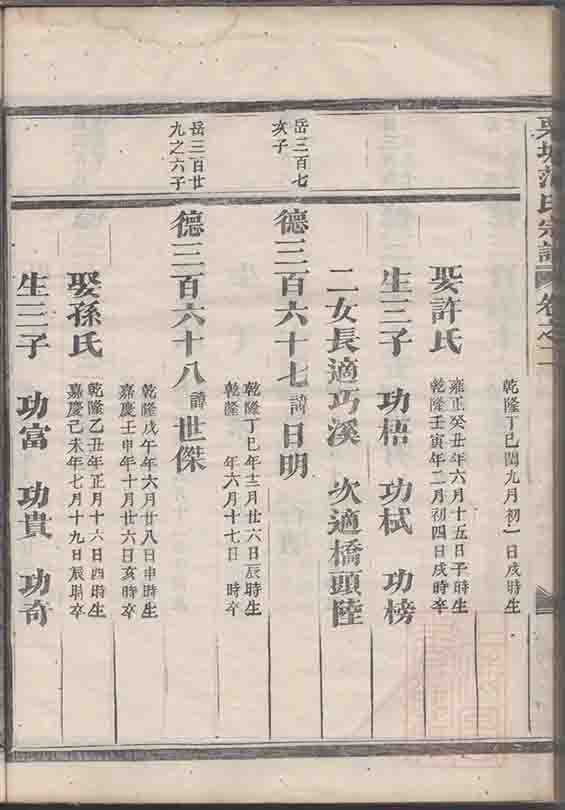 栗坡范氏宗譜 卷之二
乾隆丁巳閏九月初一日戌時生
娶許氏 雍正癸丑年六月十五日子時生
乾隆壬寅年二月初四日戌時卒
生三子 功梧 功栻 功榜
二女長適巧溪 次適橋頭陸
岳三百七
次子
德三百六十七諱日明 乾隆丁巳年十二月廿六日辰時生
乾隆 年六月十七日 時卒
岳三百廿
九之六子
德三百六十八諱世傑 乾隆戊午年六月廿八日申時生
嘉慶壬申年十月廿六日亥時卒
娶孫氏 乾隆乙丑年正月十六日酉時生
嘉慶己未年七月十九日辰時卒
生三子 功富 功貴 功奇